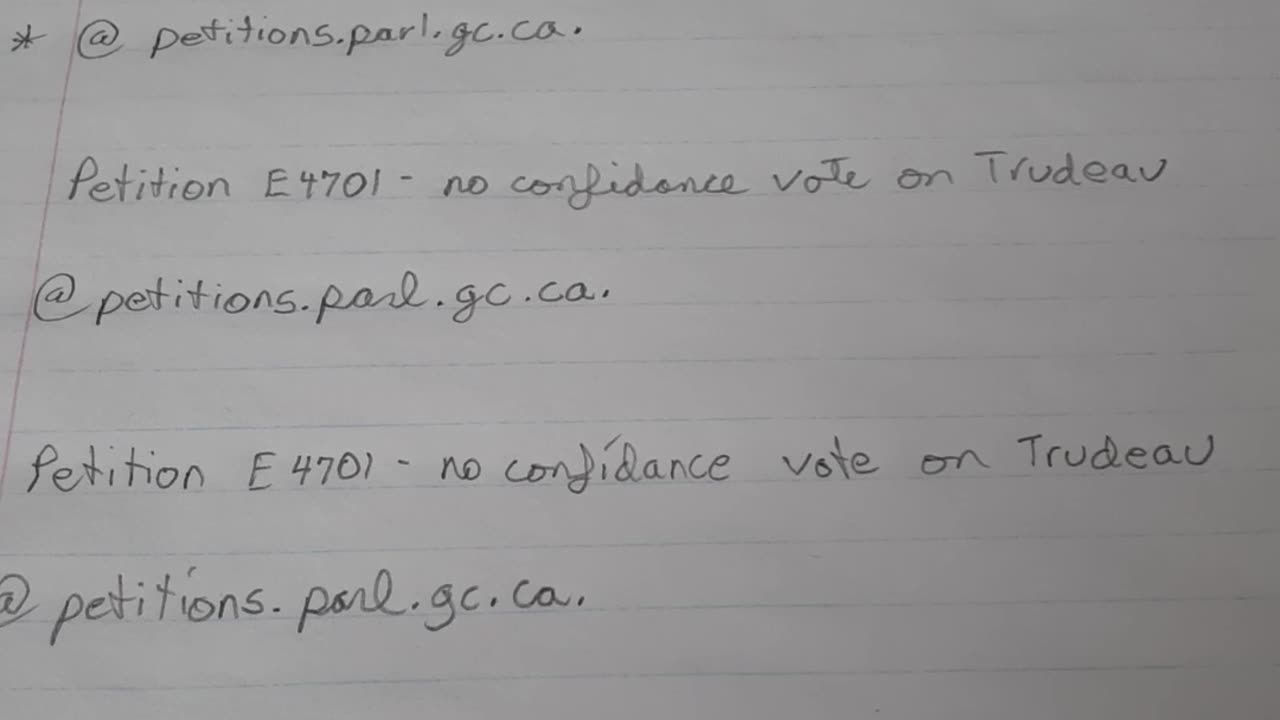 * @ petitions.parl.gc.ca.
Petition E4701 - no confidance vote on Trudeau
@petitions.parl.gc.ca.
Petition E4701 - no confidance vote on Trudeau
@ petitions.parl.gc.ca.